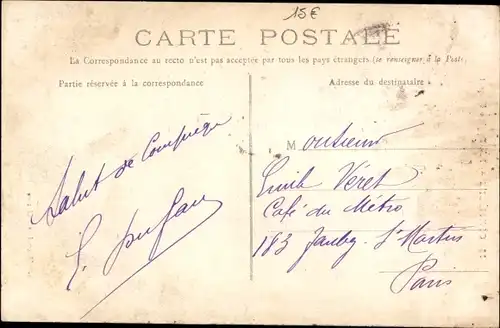 15€
CARTE POSTALE
La Correspondance au recto n'est pas acceptée par tous les pays étrangers (se renseigner à la Poste)
Partie réservée à la correspondance
Adresse du destinataire
Salut de Compiègne
Monsieur
Emile Véret
Café du Métro
183 Faubg St Martin
Paris